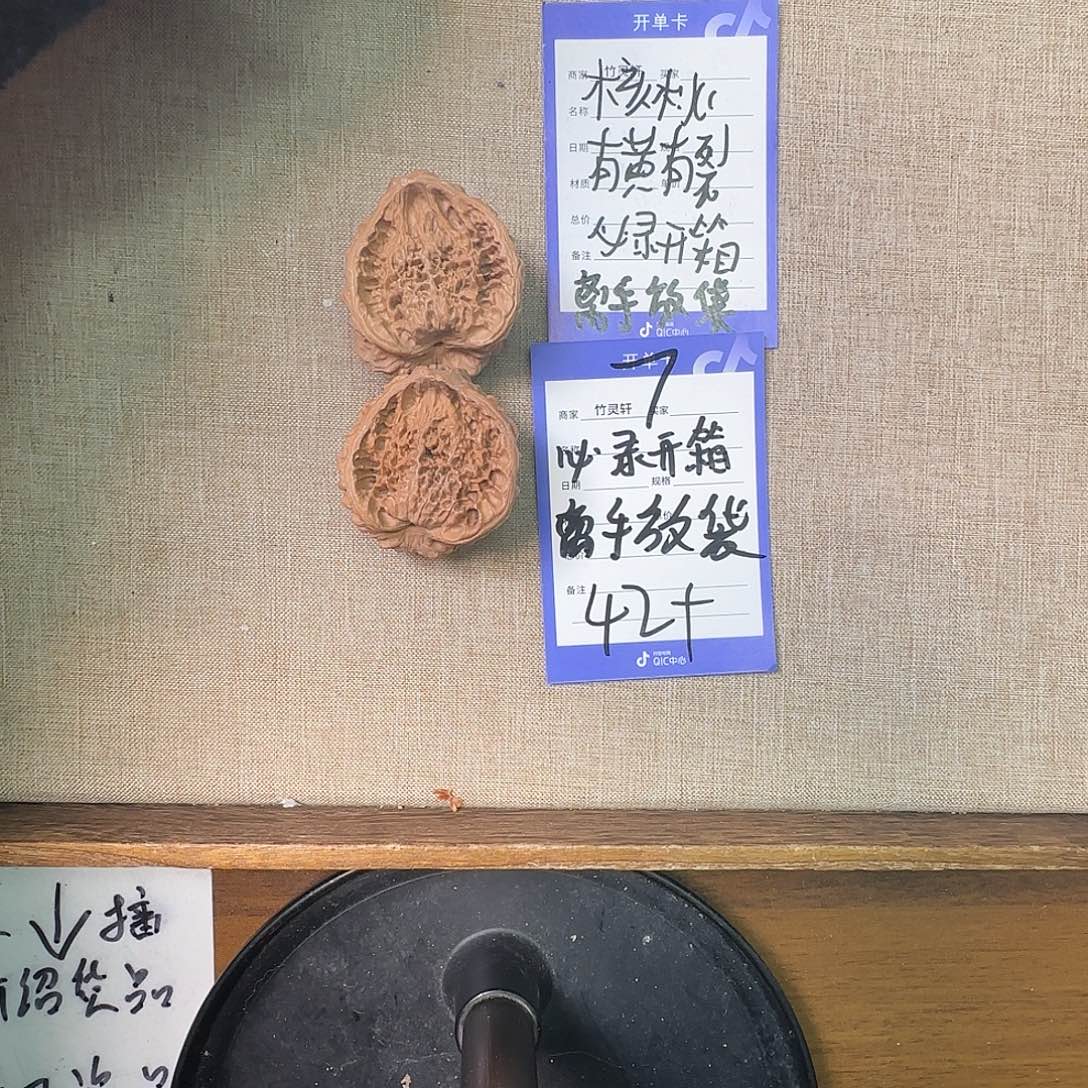 开单卡
商家 竹灵轩 买家
核桃
名称
日期 规格
有黄有裂
材质 单价
总价
必录开箱
备注
离手放袋
QIC中心
开单卡
7
商家 竹灵轩 买家
必录开箱
日期 规格
离手放袋
备注
42+
抖音电商
QIC中心
↓播
绍货品